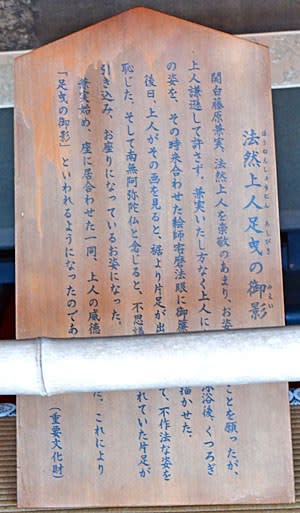 法然上人足曳の御影
ほうねんしょうにんあしびき
みえい
関白藤原兼実、法然上人を崇敬のあまり、お姿 ことを願ったが、
上人謙遜して許さず。兼実いたし方なく上人に 浴後、くつろぎ
の姿を、その時来合わせた絵師宅磨法眼に御簾 描かせた。
後日、上人がその画を見ると、裾より片足が出 て、不作法な姿を
恥じた。そして南無阿弥陀仏と念じると、不思 れていた片足が
引き込み、お座りになっているお姿になった。
兼実始め、座に居合わせた一同、上人の威徳 た。これにより
「足曳の御影」といわれるようになったのであ
(重要文化財)